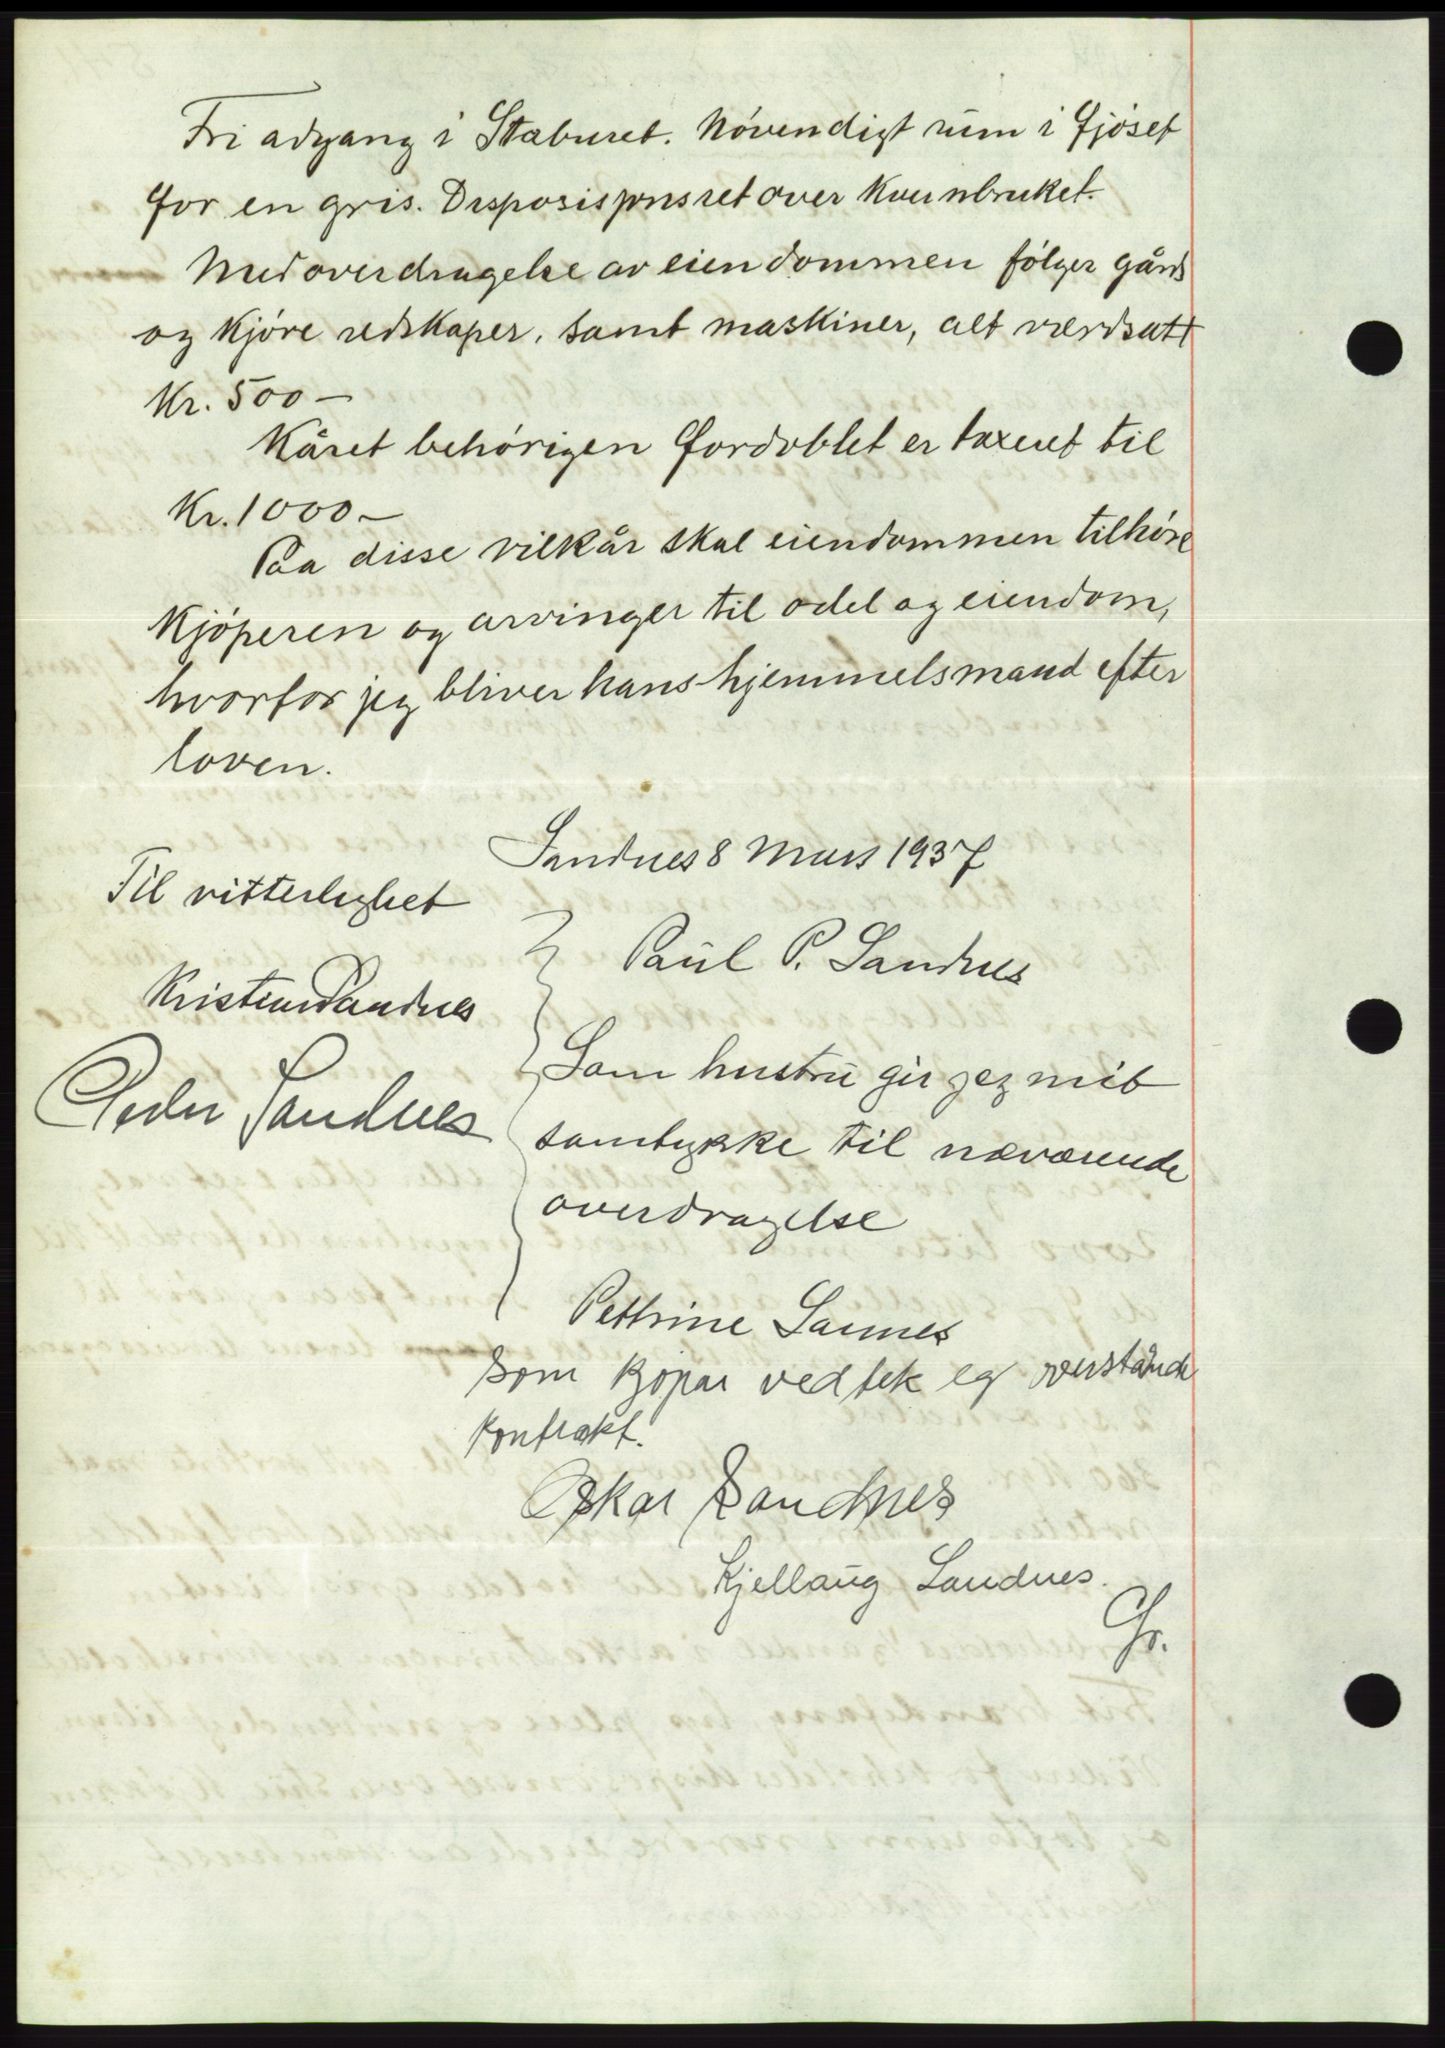 Fri adgang i Staburet. Nóvendigt rum i fjóset
for en gris. Disposisjonsret over Kvernbruket.
Med overdragelse av eiendommen fólger gårds
og kjóre redskaper, samt maskiner, alt værdsatt
Kr. 500 –
Kåret behórigen fordoblet er taxeret til
Kr. 1000 –
Paa disse vilkår skal eiendommen tilhóre
Kjóperen og arvinger til odel og eiendom,
hvorfor jeg bliver hans hjemmelsmand efter
loven.
Sandnes 8 Mars 1937
Til vitterlighet
Paul P. Sandnes
Kristian Sandnes
Som hustru gir jeg mit
Peder Sandnes
samtykke til nærværende
overdragelse
Pethrine Sannes
Som kjópar vedtek eg overståande
kontrakt.
Oskar Sandnes
Kjellaug Sandnes.